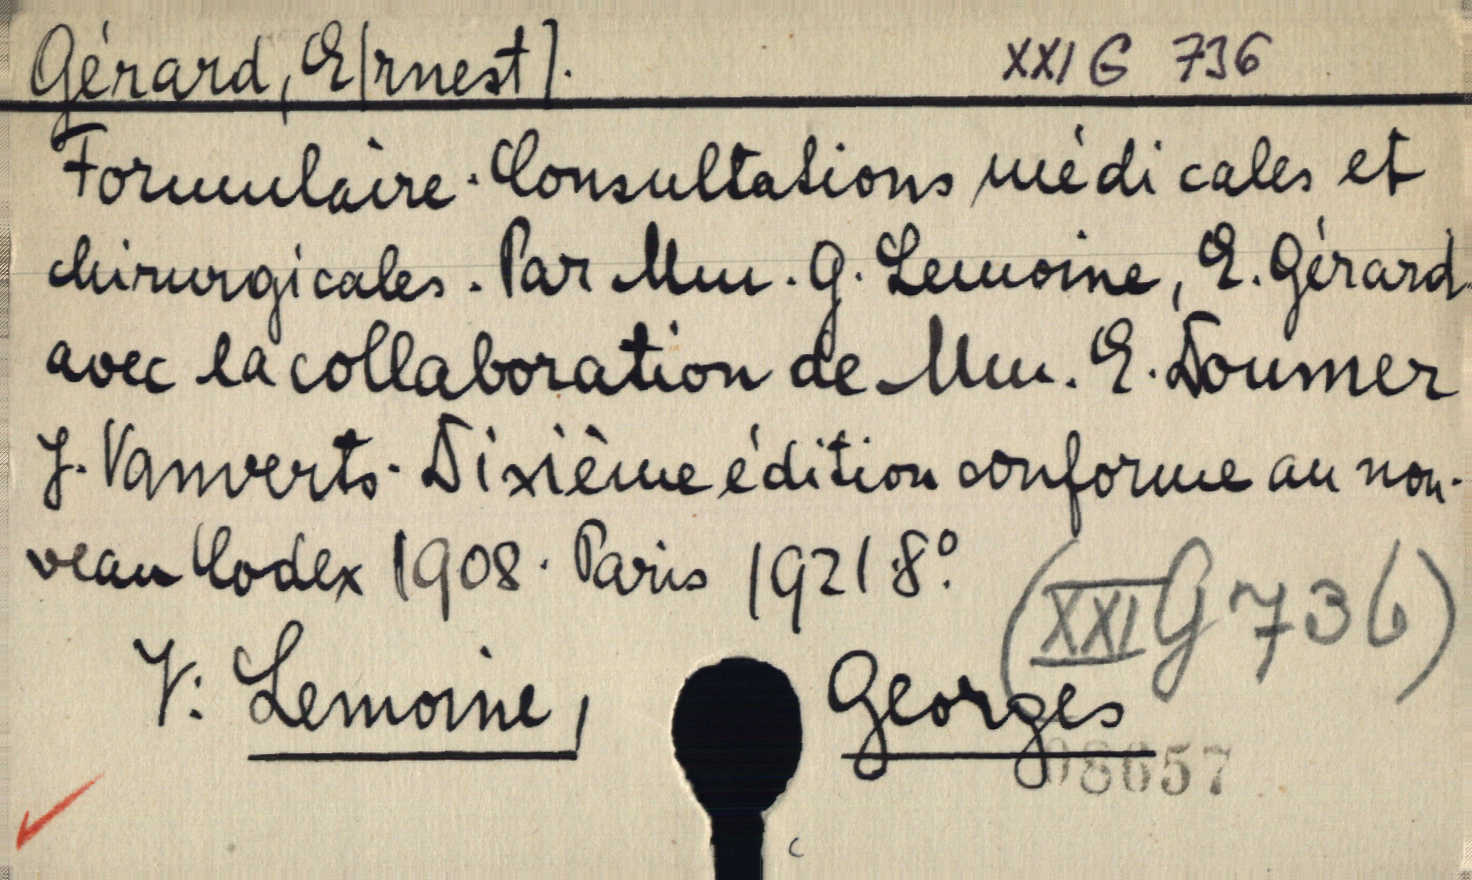 Gérard, E[rnest]. XXI G 736
Formulaire. Consultations médicales et
chirurgicales. Par Mm. G. Lemoine, E. Gérard
avec la collaboration de Mm. E. Doumer
J. Vanverts. Dixième édition conforme au nou-
veau Codex 1908. Paris 1921.8°.
(XXI G 736)
V: Lemoine, Georges
08657